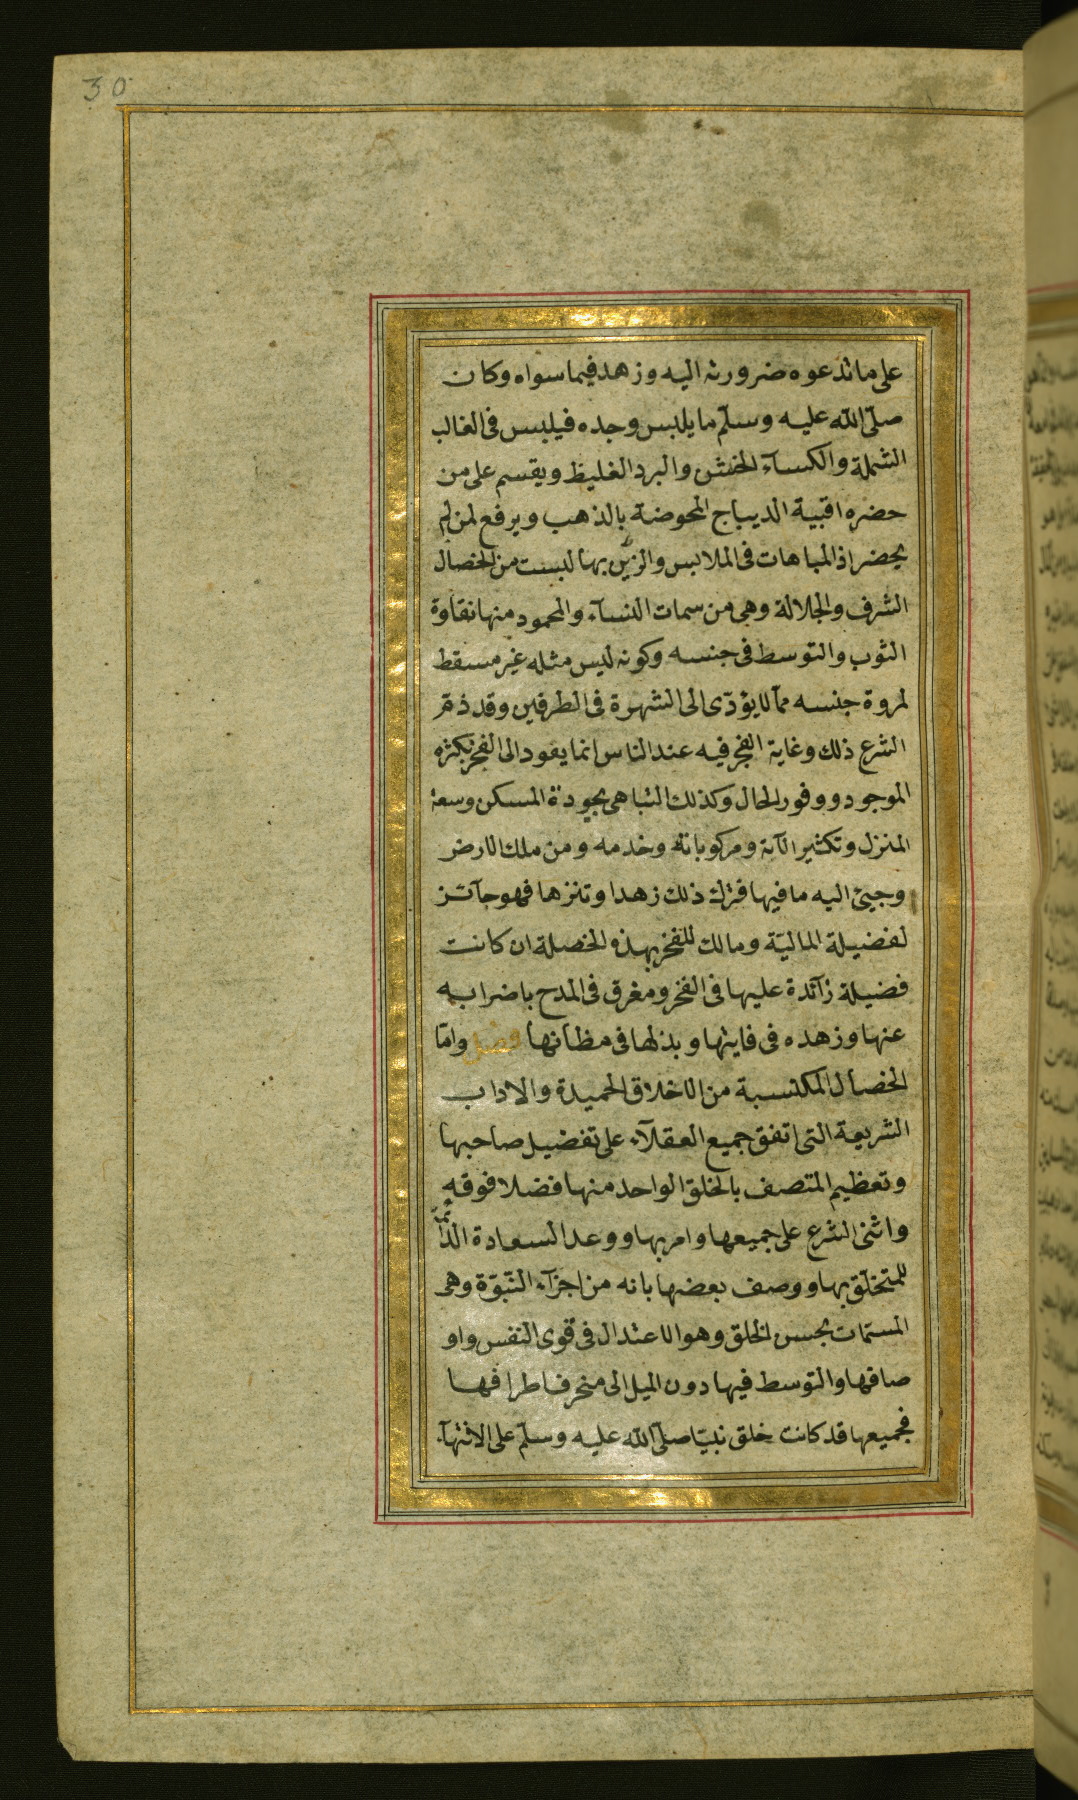 30
على ما تدعوه ضرورته اليه وزهد فيما سواه وكان
صلّى الله عليه وسلّم ما يلبس وجده فيلبس فى الغالب
الشملة والكسآء الخشن والبرد الغليظ ويقسم على من
حضره اقبية الديباج المخوصة بالذهب ويرفع لمن لم
يحضر اذ المباهات فى الملابس والزين بها ليست من الخصال
الشرف والجلالة وهى من سمات النسآء والمحمود منها نقاوة
الثوب والتوسط فى جنسه وكونه ليس مثله غير مسقط
لمروة جنسه ممّا لا يؤدّى الى الشهرة فى الطرفين وقد ذمّ
الشرع ذلك وغاية الفخر فيه عند الناس انما يقود الى الفخر بكثره
الموجود ووفور الحال وكذلك التباهى بجودة المسكن وسعة
المنزل وتكثير الآته ومركوباته وخدمه ومن ملك الارض
وجيئ اليه ما فيها فترك ذلك زهدا وتنزها فهو حآئز
لفضيلة الماليّة ومالك للفخر بهذه الخصلة ان كانت
فضيلة زآئدة عليها فى الفخر ومغرق فى المدح باضرابه
عنها وزهده فى فانيتها وبذلها فى مظانها فصل وامّا
الخصال المكتسبة من الاخلاق الحميدة والاداب
الشريعة التى اتفق جميع العقلآء على تفضيل صاحبها
وتعظيم المتصف بالخلق الواحد منها فضلا فوقه
واثنى الشرع على جميعها وامر بها ووعد السعادة الدآئمة
للمتخلّق بها ووصف بعضها بانه من اجزآء النّبوّة وهى
المسمّات بحسن الخلق وهو الاعتدال فى قوى النفس واو
صافها والتوسط فيها دون الميل الى منحرف اطرافها
فجميعها قد كانت خلق نبيّنا صلّى الله عليه وسلّم على الانتهآء